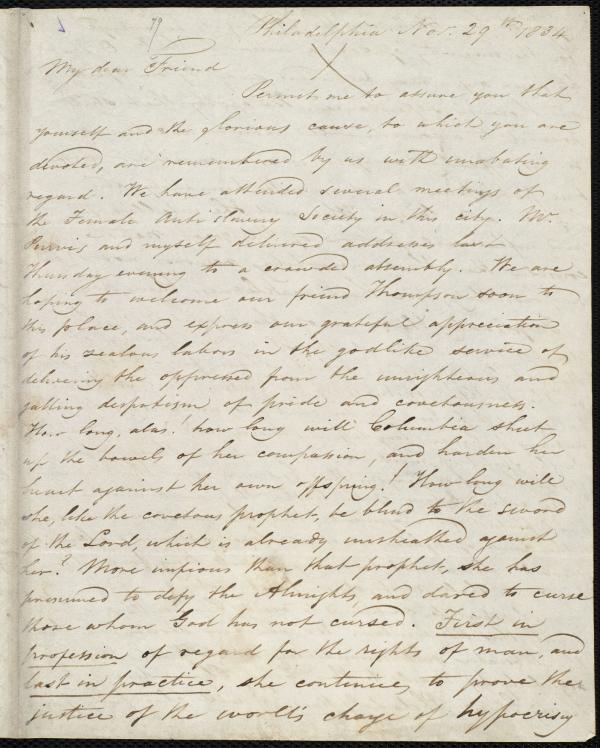 79
Philadelphia Nov. 29th 1834
My dear Friend
Permit me to assure you that
yourself and the glorious cause, to which you are
devoted, are remembered by us with unabating
regard. We have attended several meetings of
the Female Anti slavery Society in this city. Mr.
Purvis and myself delivered addresses last
Thursday evening to a crowded assembly. We are
hoping to welcome our friend Thompson soon to
this place, and express our grateful appreciation
of his zealous labors in the godlike service of
delivering the oppressed from the unrighteous and
galling despotism of pride and covetousness.
How long, alas! how long will Columbia shut
up the bowels of her compassion, and harden her
heart against her own offspring! How long will
she, like the covetous prophet, be blind to the sword
of the Lord, which is already unsheathed against
her? More impious than that prophet, she has
presumed to defy the Almighty and dared to curse
those whom God has not cursed. First in
profession of regard for the rights of man, and
last in practice, she continues to prove the
justice of the world's charge of hypocrisy